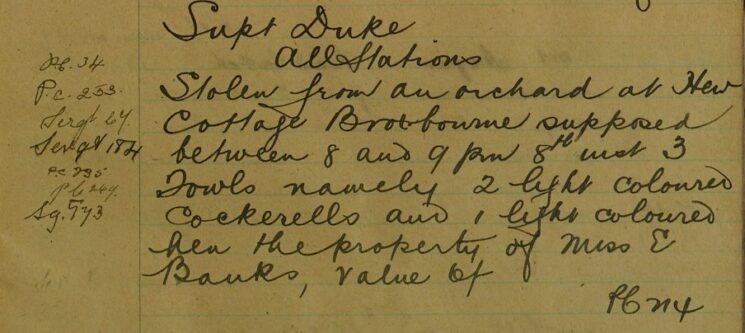 Supt Duke
All Stations
P.C. 34
P.c. 253.
Sergt 64
Sergt 184
P.c 295
P.C 249.
Sg. 773
Stolen from an orchard at New
Cottage Broxbourne supposed
between 8 and 9 pm 8th inst 3
Fowls namely 2 light coloured
Cockerells and 1 light coloured
hen the property of Miss E
Banks, Value 6/